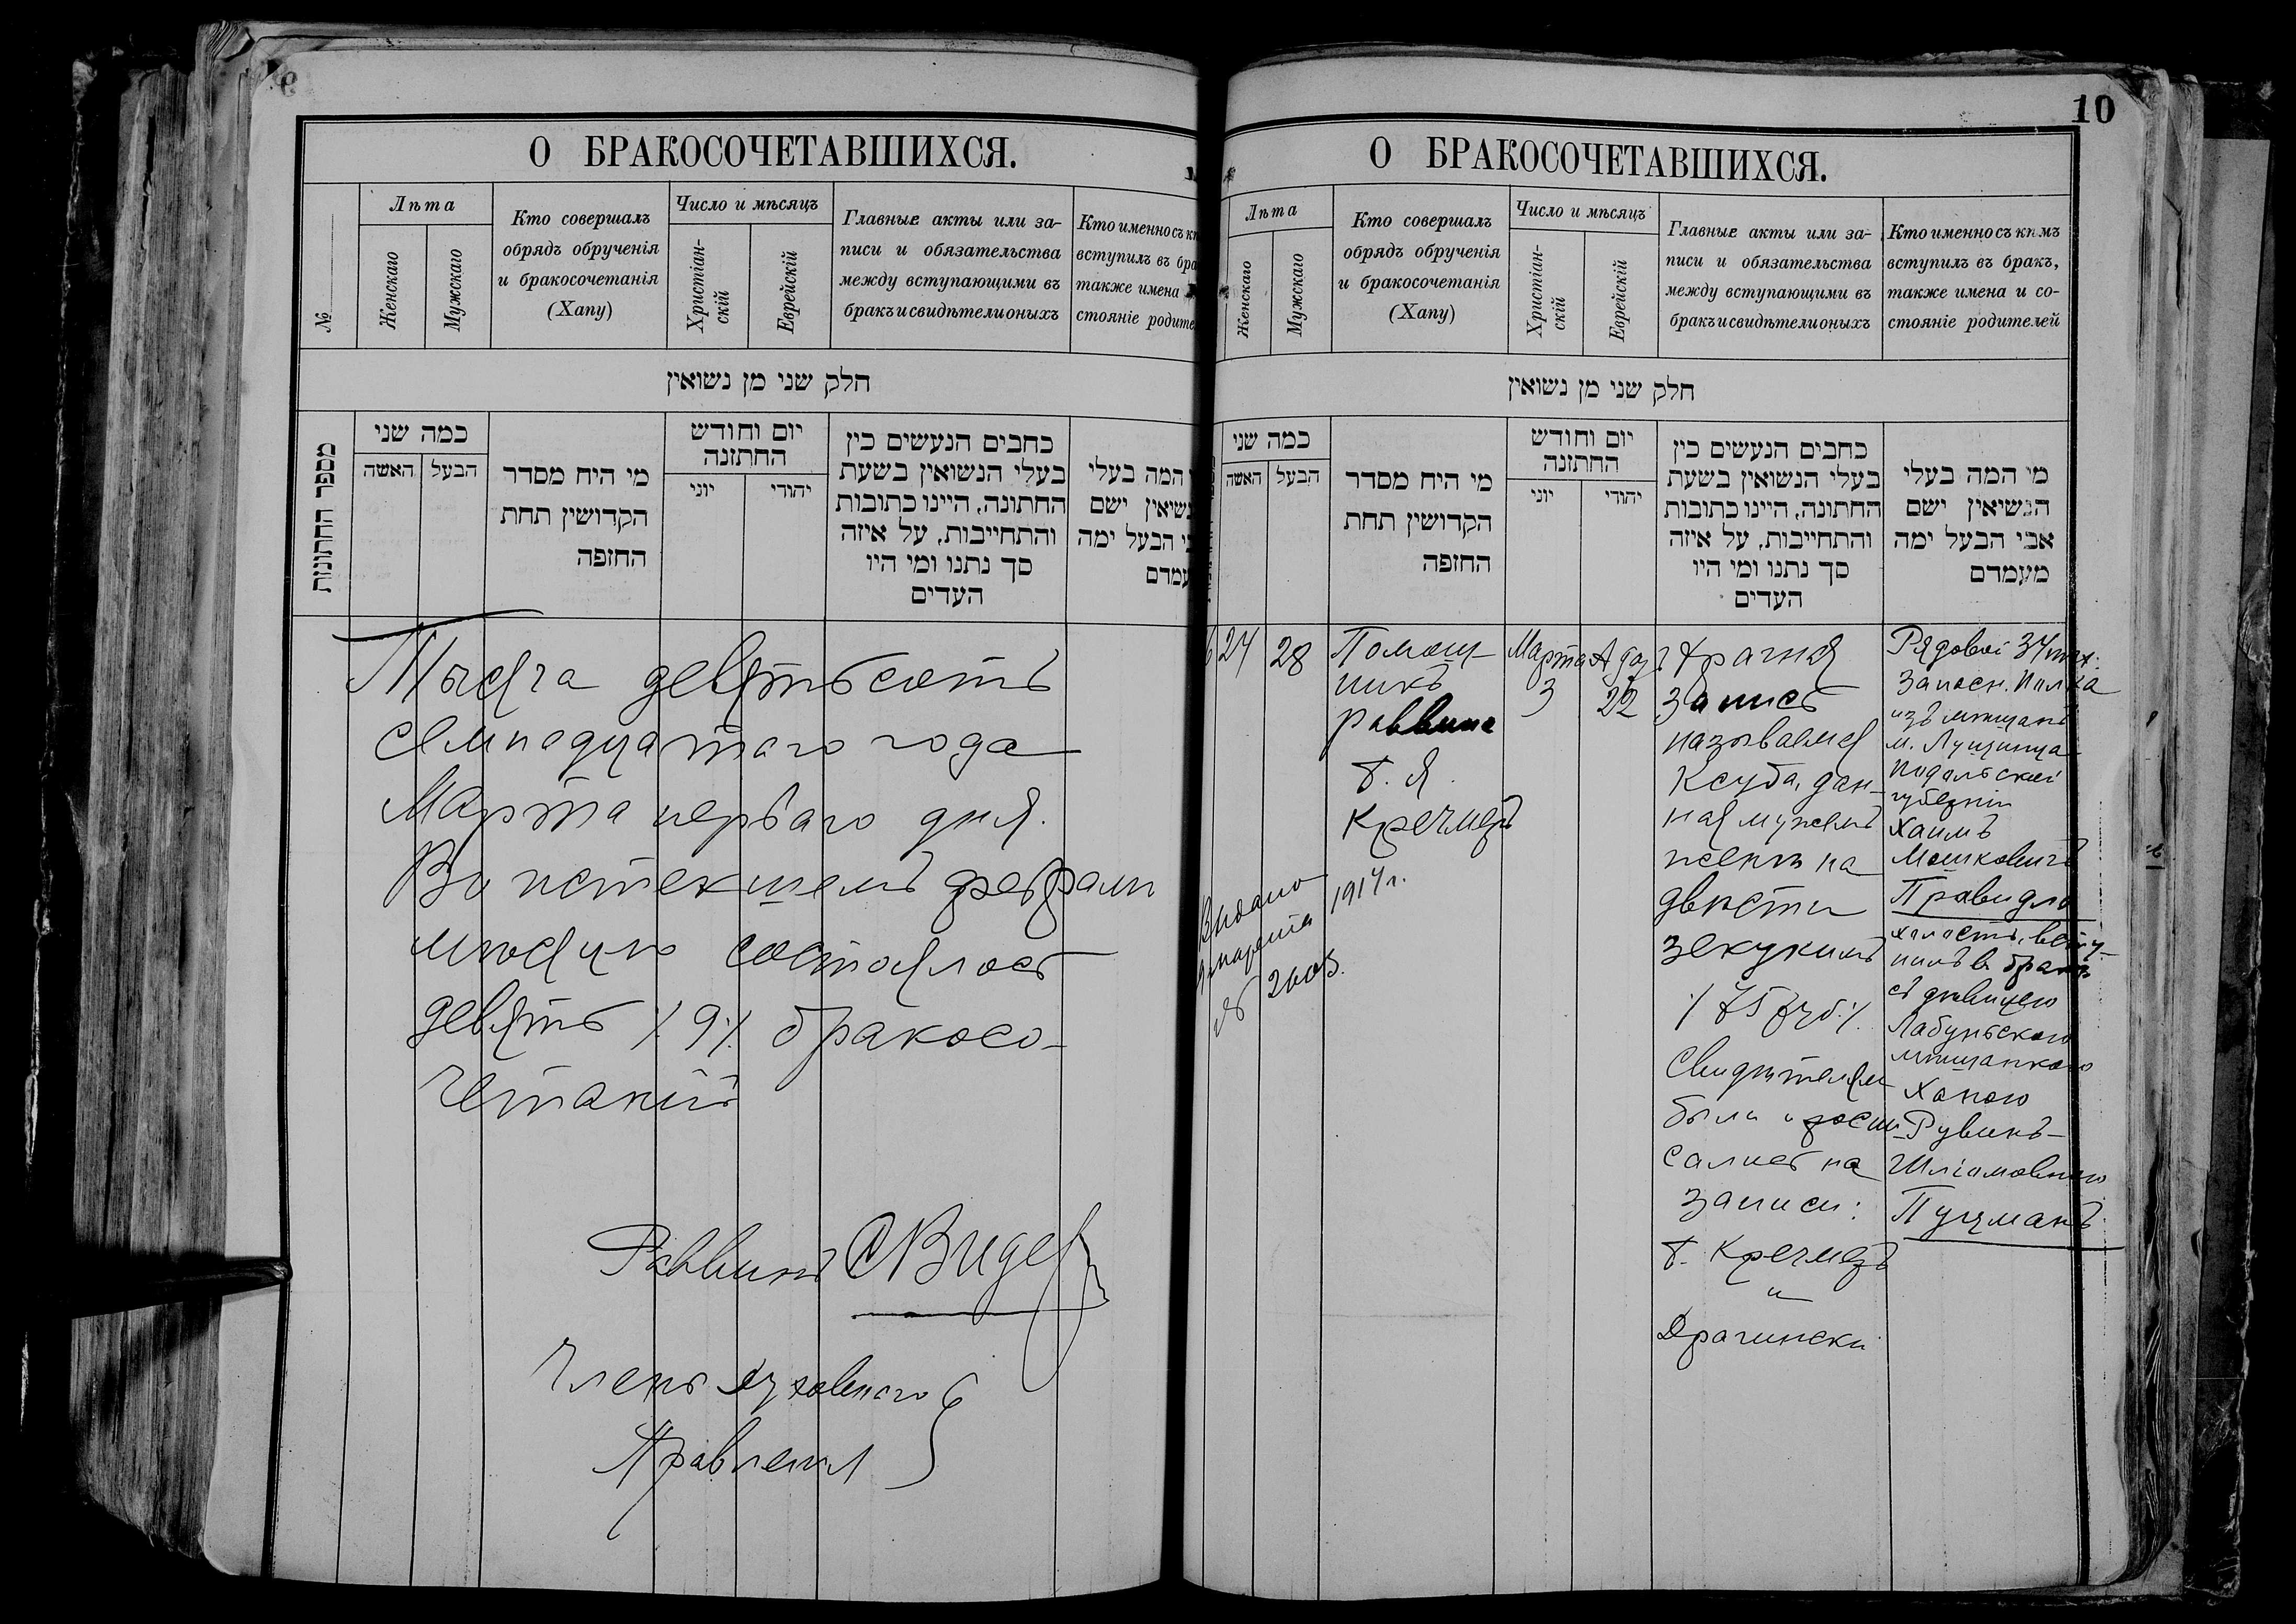 О БРАКОСОЧЕТАВШИХСЯ.
№
Лѣта
Женскаго
Мужскаго
Кто совершалъ
обрядъ обрученія
и бракосочетанія
(Хапу)
Число и мѣсяцъ
Христіан-
скій
Еврейскій
Главные акты или за-
писи и обязательства
между вступающими въ
бракъ и свидѣтели оныхъ
Кто именно съ к
вступилъ въ бра
также имена
стояніе родите
חלק שני מן נשואין
מספר החתונות
כמה שני
האשה
הבעל
מי היח מסדר
הקדושין תחת
החזפה
יום וחודש
החתזנה
יוני
יהודי
כחבים הנעשים כין
בעלי הנשואין בשעת
החתונה, היינו כתובות
והתחייבות, על איזה
סך נתנו ומי היו
העדים
המה בעלי
נשיאין ישם
בי הבעל ימה
עמדם
Тысяча девятьсотъ
семнадцатаго года
Марта перваго дня.
Во истекшемъ февралѣ
мѣсяцѣ состоялось
девять /.9/. бракосо-
четаній
Раввинъ СВидер
Члены Духовнаго
Правленія
10
О БРАКОСОЧЕТАВШИХСЯ.
Лѣта
Женскаго
Мужскаго
Кто совершалъ
обрядъ обрученія
и бракосочетанія
(Хапу)
Число и мѣсяцъ
Христіан-
скій
Еврейскій
Главные акты или за-
писи и обязательства
между вступающими въ
бракъ и свидѣтели оныхъ
Кто именно съ кѣмъ
вступилъ въ бракъ,
также имена и со-
стояніе родителей
חלק שני מן נשואין
כמה שני
האשה
הבעל
מי היח מסדר
הקדושין תחת
החזפה
יום וחודש
החתזנה
יוני
יהודי
כחבים הנעשים כין
בעלי הנשואין בשעת
החתונה, היינו כתובות
והתחייבות, על איזה
סך נתנו ומי היו
העדים
מי המה בעלי
הנשיאין ישם
אבי הבעל ימה
מעמדם
24
28
Помощ-
никъ
раввина
Т. Я.
Кречмеръ
Марта
3
Адар
22
Брачная
запись
называемая
Ксуба, дан-
ная мужемъ
женѣ на
двѣсти
зекукимъ
/.75 руб./.
Свидѣтелями
были и роспи-
сались на
записи:
Т. Кречмеръ
и
Драчински
Рядовой 34 пѣх.
Запасн. Полка
изъ мѣщанъ
м. Лучинца
Подольской
губерніи
Хаимъ
Мошковичъ
Правидло
холостъ, всту-
пилъ въ бракъ
съ дѣвицею
Лабунскою
мѣщанкою
Ханою
Рувинъ-
Шліомовною
Пучманъ
Выдано
1917 г.
№ 2005.